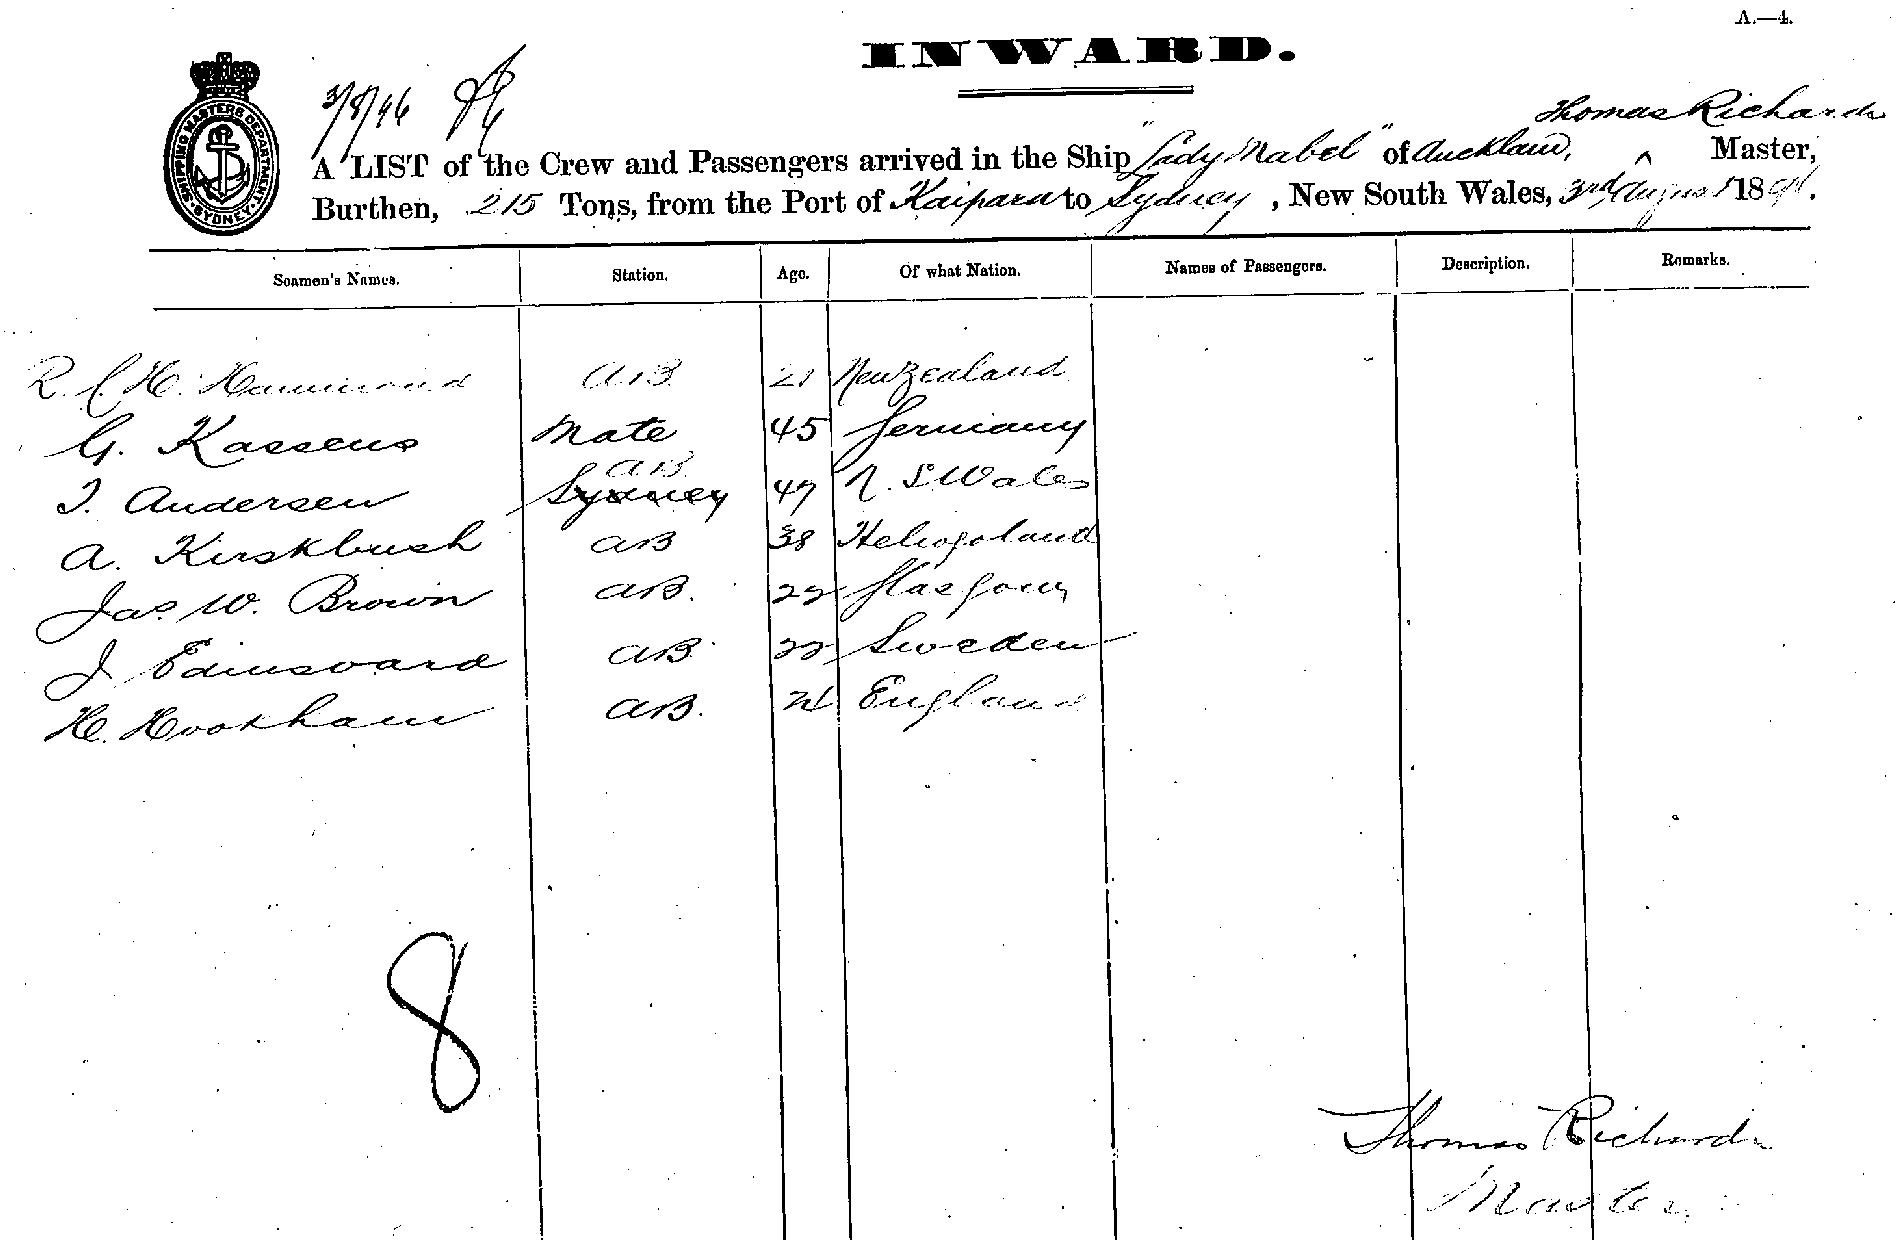 A.—4.
INWARD.
SHIPPING MASTERS DEPARTMENT SYDNEY
3/8/96
Thomas Richards
A LIST of the Crew and Passengers arrived in the Ship "Lady Mabel" of Auckland, ^ Master,
Burthen, 215 Tons, from the Port of Kaipara to Sydney, New South Wales, 3rd August 1896.
Seamen's Names. Station. Age. Of what Nation. Names of Passengers. Description. Remarks.
R. C. H. Hammond AB 21 New Zealand
G. Kassens Mate 45 Germany
AB
T. Andersen Sydney 47 N. S Wales
A. Kirskbush AB 38 Heliogoland
Jas. W. Brown AB. 22 Glasgow
J Edinsvard AB 22 Sweden
H. Hookham AB. 21 England
8
Thomas Richards
Master